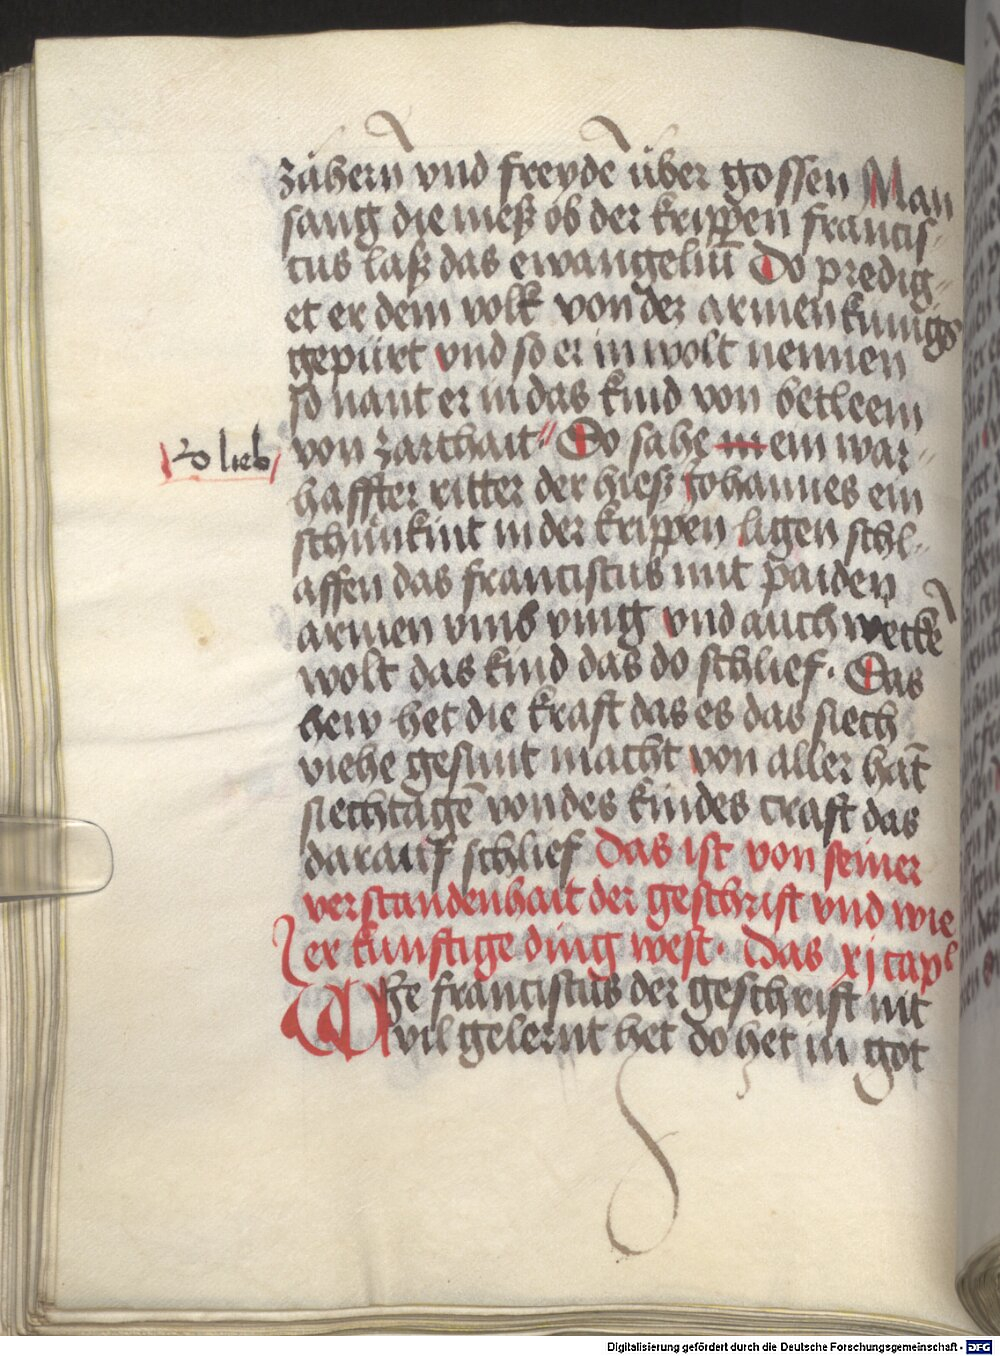 zähern̄ vnd freyde über gossen Man
sang die meß ob der krippen francis-
cus laß das ewangeliū Do predig-
et er dem volk von der armen kunigs
gepürt vnd so er in wolt nennen
so nant er in das kind von betleem
von zarthait Do sahe ein war-
haffter ritter der hieß Johannes ein
schün kint in der krippen ligen schl-
affen das franciscus mit paiden
armen vmb ving vnd auch weckē
wolt das kind das do schlief. Das
hew het die kraft das es das siech
viehe gesunt macht von aller hāt
siechtagē von des kindes craft das
darauf schlief Das ist von seiner
verstandenhait der geschrift vnd wie
er kunftige ding west. Das xj cap
Wye franciscus der geschrift nit
vil gelernt het do het in got
lieb
Digitalisierung gefördert durch die Deutsche Forschungsgemeinschaft - DFG